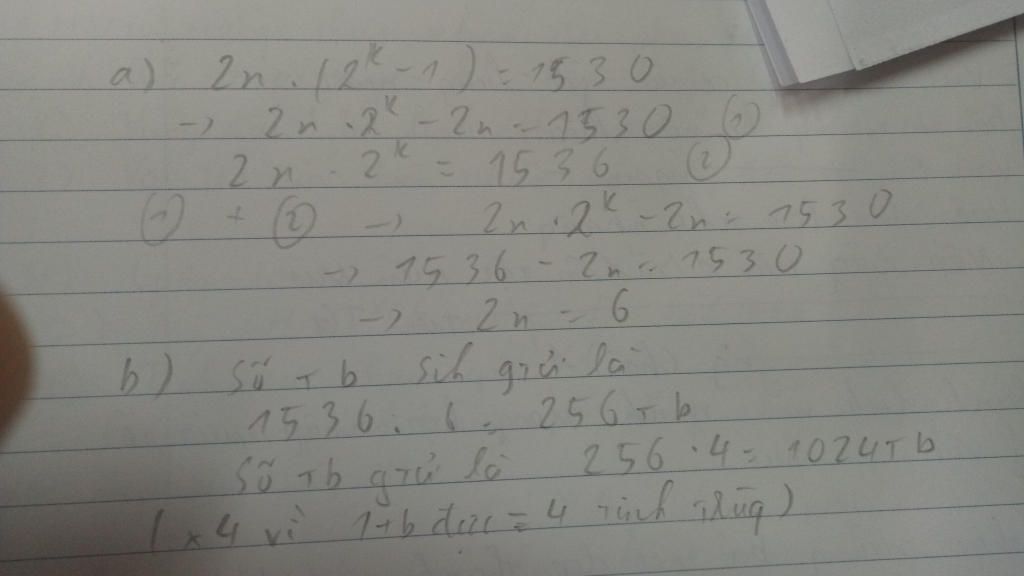 a) 2n . (2^k - 1) = 1530
→ 2n . 2^k - 2n = 1530 ①
2n . 2^k = 1536 ②
① + ② → 2n . 2^k - 2n = 1530
→ 1536 - 2n = 1530
→ 2n = 6
b) Số tb sih gtử là
1536 : 6 = 256 tb
Số tb gtử là 256 . 4 = 1024 tb
( x 4 vì 1 tb đực = 4 trùg )